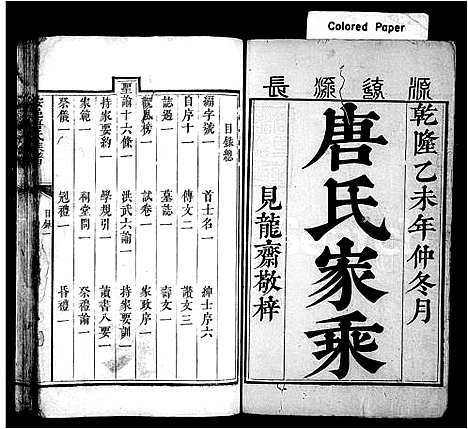 Colored Paper
源遠源長
乾隆乙未年仲冬月
唐氏家乘
見龍齋敬梓
目錄總
編字號一 首士名一 紳士序六
自序十一 傳文二 讚文三
誌過一 墓誌一 壽文一
觀風榜一 試卷一 家政序一
聖諭十六條一 洪武六諭一 持家要訓一
持家要約一 學規引一 讀書八要一
家範一 祠堂問一 祭禮論一
祭儀一 冠禮一 昏禮一
目錄